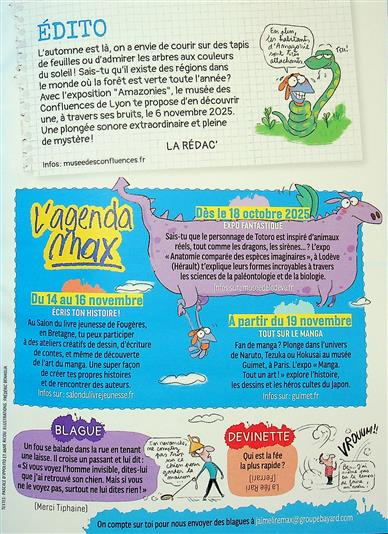 ÉDITO
L'automne est là, on a envie de courir sur des tapis
de feuilles ou d'admirer les arbres aux couleurs
du soleil ! Sais-tu qu'il existe des régions dans
le monde où la forêt est verte toute l'année ?
Avec l'exposition "Amazonies", le musée des
Confluences de Lyon te propose d'en découvrir
une, à travers ses bruits, le 6 novembre 2025.
Une plongée sonore extraordinaire et pleine
de mystère !
LA RÉDAC'
Infos : museedesconfluences.fr
En plus,
les habitants
d'Amazonie
sont très
attachants.
L'agenda
max
Dès le 18 octobre 2025
EXPO FANTASTIQUE
Sais-tu que le personnage de Totoro est inspiré d'animaux
réels, tout comme les dragons, les sirènes... ? L'expo
« Anatomie comparée des espèces imaginaires », à Lodève
(Hérault) t'explique leurs formes incroyables à travers
les sciences de la paléontologie et de la biologie.
Infos sur : museedelodeve.fr
Du 14 au 16 novembre
ÉCRIS TON HISTOIRE !
Au Salon du livre jeunesse de Fougères,
en Bretagne, tu peux participer
à des ateliers créatifs de dessin, d'écriture
de contes, et même de découverte
de l'art du manga. Une super façon
de créer tes propres histoires
et de rencontrer des auteurs.
Infos sur : salondulivrejeunesse.fr
À partir du 19 novembre
TOUT SUR LE MANGA
Fan de manga ? Plonge dans l'univers
de Naruto, Tezuka ou Hokusai au musée
Guimet, à Paris. L'expo « Manga.
Tout un art ! » explore l'histoire,
les dessins et les héros cultes du Japon.
Infos sur : guimet.fr
BLAGUE
Un fou se balade dans la rue en tenant
une laisse. Il croise un passant et lui dit :
« Si vous voyez l'homme invisible, dites-lui
que j'ai retrouvé son chien. Mais si vous
ne le voyez pas, surtout ne lui dites rien ! »
(Merci Tiphaine)
DEVINETTE
Qui est la fée
la plus rapide ?
La fée rari
(Ferrari)
VROUUM!!
On compte sur toi pour nous envoyer des blagues à jaimeliremax@groupebayard.com